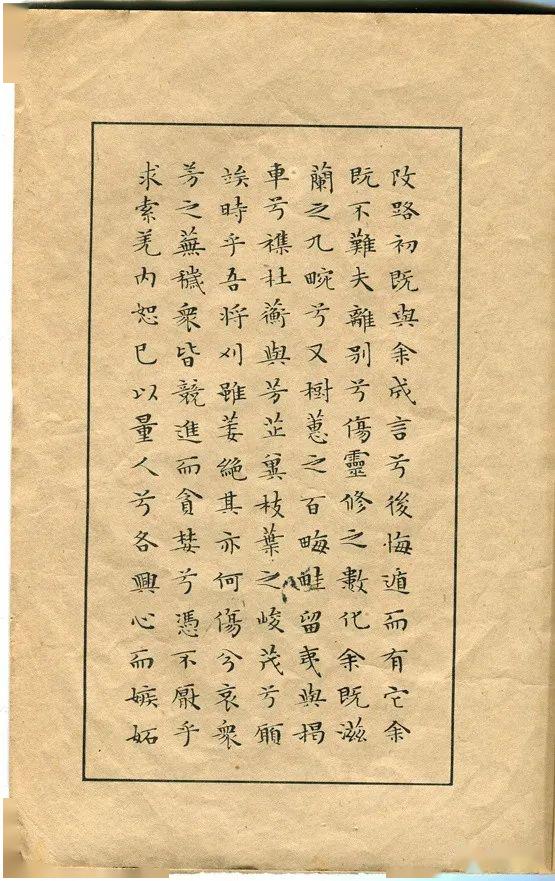 改路初既與余成言兮後悔遁而有它余
既不難夫離別兮傷靈修之數化余既滋
蘭之九畹兮又樹蕙之百畮畦留夷與揭
車兮襍杜蘅與芳芷冀枝葉之峻茂兮願
竢時乎吾將刈雖萎絶其亦何傷兮哀衆
芳之蕪穢衆皆競進而貪婪兮憑不厭乎
求索羌內恕已以量人兮各興心而嫉妬